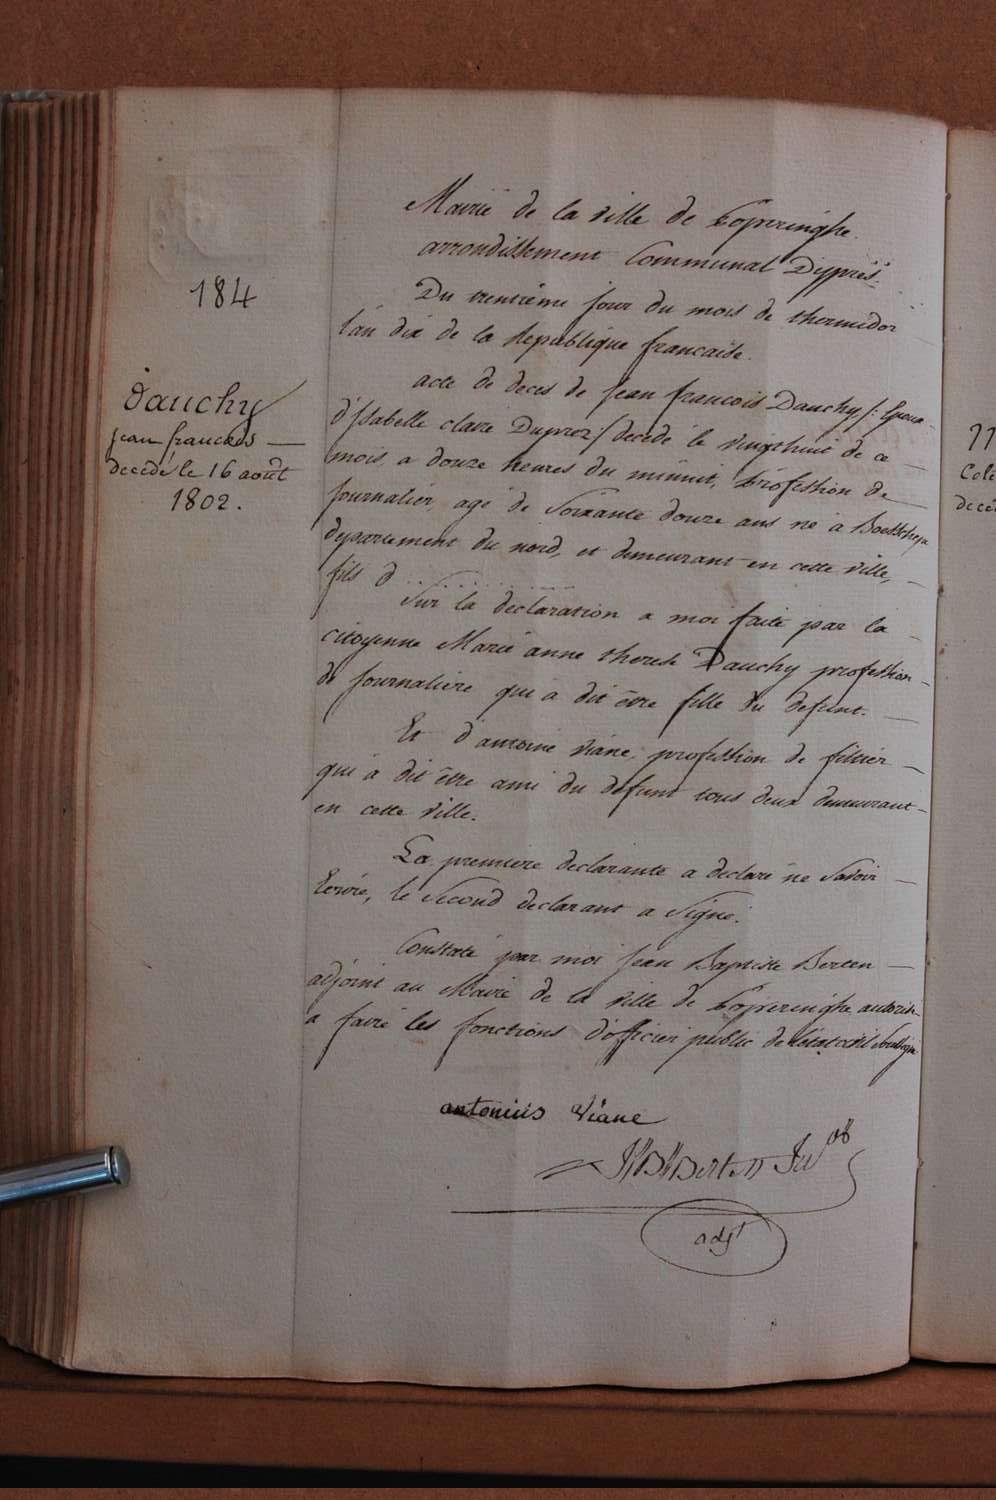 184
Dauchy
jean francois
decedé le 16 août
1802.
Mairie de la ville de Poperinghe.
arrondissement Communal Dypres.
Du trentième jour du mois de thermidor
l'an dix de la Republique francaise.
acte de deces de jean francois Dauchy /: Epoux
d'Isabelle claire Duprez / decedé le vingthuit de ce
mois, a douze heures du minuit, Profession de
Journalier, agé de Soixante douze ans né a Boeschepe
departement du nord, et demeurant en cette ville,
fils d . . . . . . . . . . . .
Sur la declaration a moi faite par la
citoyenne Marie anne therese Dauchy profession
de Journaliere qui a dit être fille du defunt.
Et d'antoine Viane, profession de fillier
qui a dit être ami du defunt tous deux demeurant
en cette ville.
La premiere declarante a declaré ne Savoir
Ecrire, le Second declarant a Signé.
Constaté par moi Jean Baptiste Berten
adjoint au Maire de la Ville de Poperinghe autorisé
a faire les fonctions d'officier public de l'état civil Soussigné
antonius Viane
J B Berten
adjt
77
Cole
decé